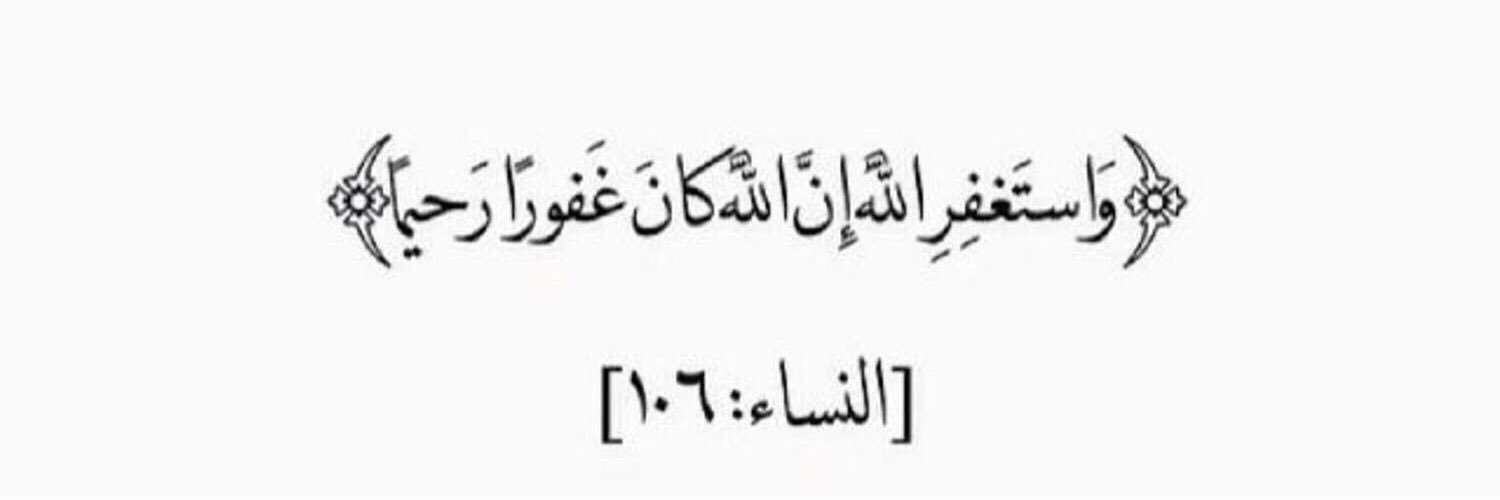 ﴿وَاستَغفِرِ اللَّهَ إِنَّ اللَّهَ كانَ غَفورًا رَحيمًا﴾
[النساء: ١٠٦]